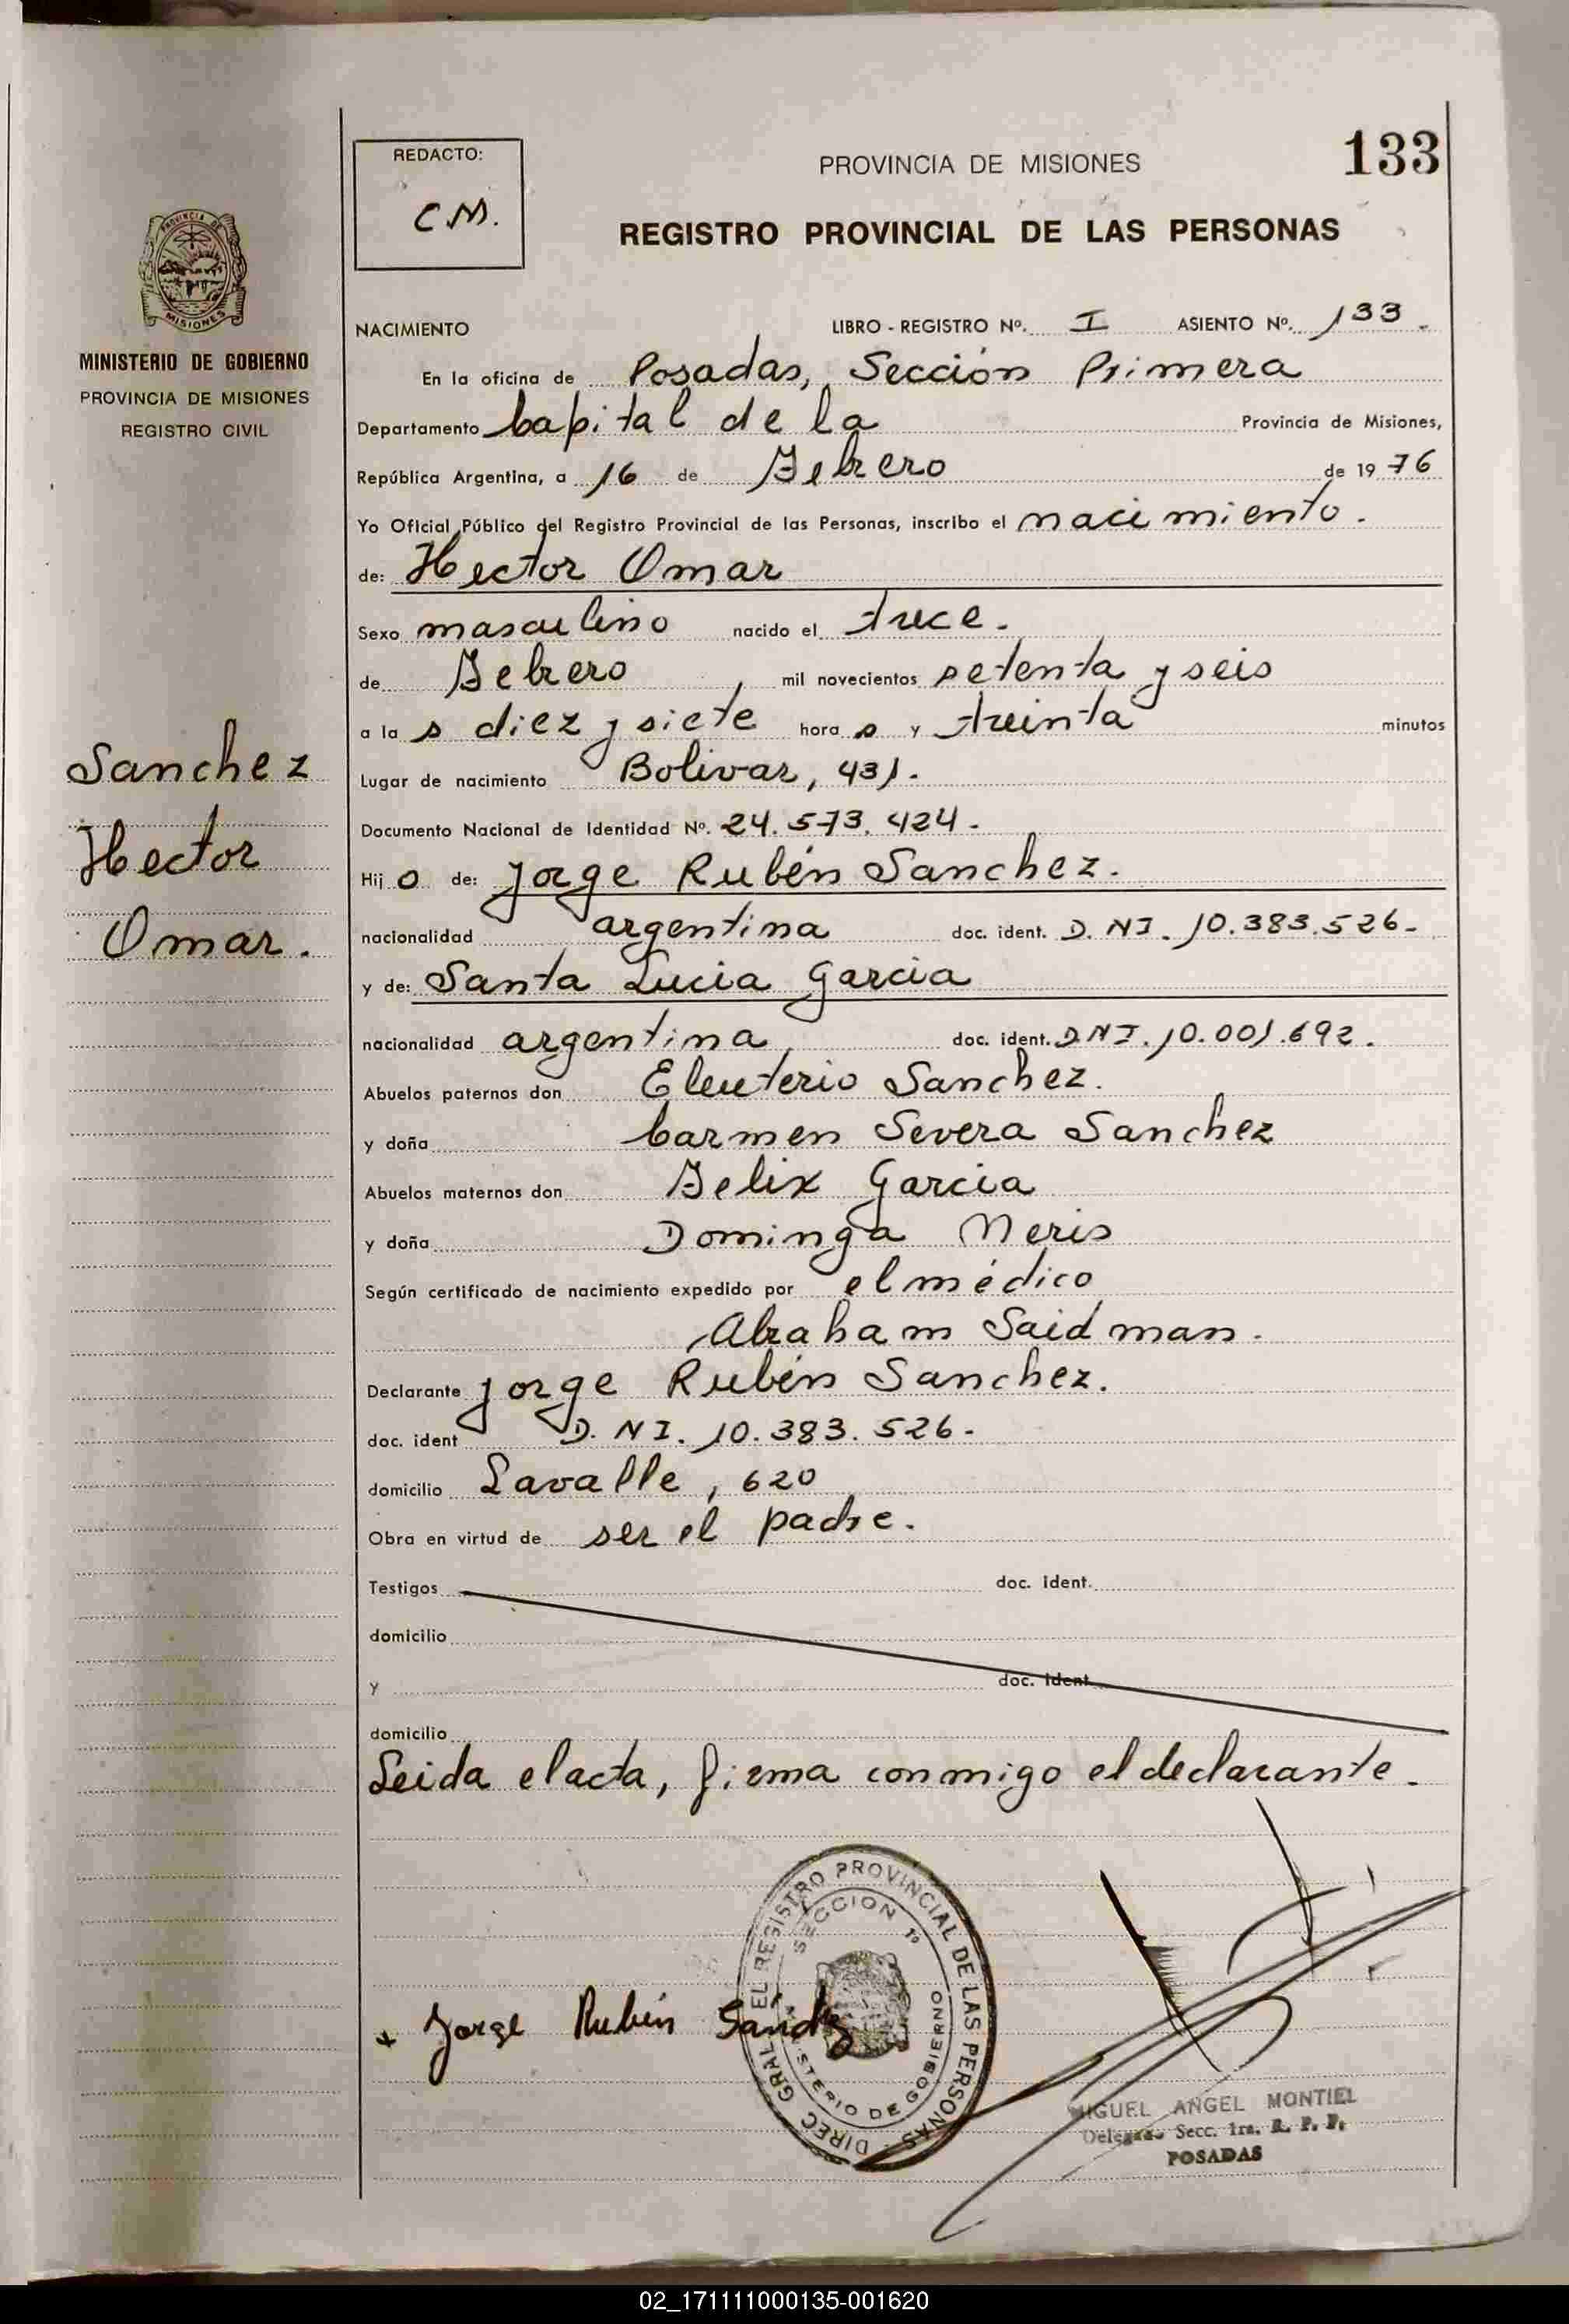 133
REDACTO:
C M.
PROVINCIA DE MISIONES
REGISTRO PROVINCIAL DE LAS PERSONAS
PROVINCIA DE
MISIONES
MINISTERIO DE GOBIERNO
PROVINCIA DE MISIONES
REGISTRO CIVIL
NACIMIENTO LIBRO - REGISTRO Nº. I ASIENTO Nº. 133.
En la oficina de Posadas, Sección Primera
Departamento Capital de la Provincia de Misiones,
República Argentina, a 16 de Febrero de 1976
Yo Oficial Público del Registro Provincial de las Personas, inscribo el nacimiento.
de: Hector Omar
Sexo masculino nacido el trece.
de Febrero, mil novecientos setenta y seis
a la s diez y siete hora s y treinta minutos
Lugar de nacimiento Bolivar, 431.
Documento Nacional de Identidad Nº. 24.573.424.
Hij o de: Jorge Rubén Sanchez.
nacionalidad argentina doc. ident. D. NI. 10.383.526.
y de: Santa Lucia Garcia
nacionalidad argentina, doc. ident. D.NI. 10.001.692.
Abuelos paternos don Eleuterio Sanchez.
y doña Carmen Severa Sanchez
Abuelos maternos don Felix Garcia
y doña Dominga Neris
Según certificado de nacimiento expedido por el médico
Abraham Saidman.
Declarante Jorge Rubén Sanchez.
doc. ident D. NI. 10.383.526.
domicilio Lavalle, 620
Obra en virtud de ser el padre.
Testigos doc. ident.
domicilio
y doc. ident
domicilio
Leida el acta, firma conmigo el declarante.
Sanchez
Hector
Omar.
DIREC GRAL EL REGISTRO PROVINCIAL DE LAS PERSONAS
SECCION 1º
MINISTERIO DE GOBIERNO
+ Jorge Rubén Sánchez
MIGUEL ANGEL MONTIEL
Delegado Secc. 1ra. R. P. P.
POSADAS
02_171111000135-001620